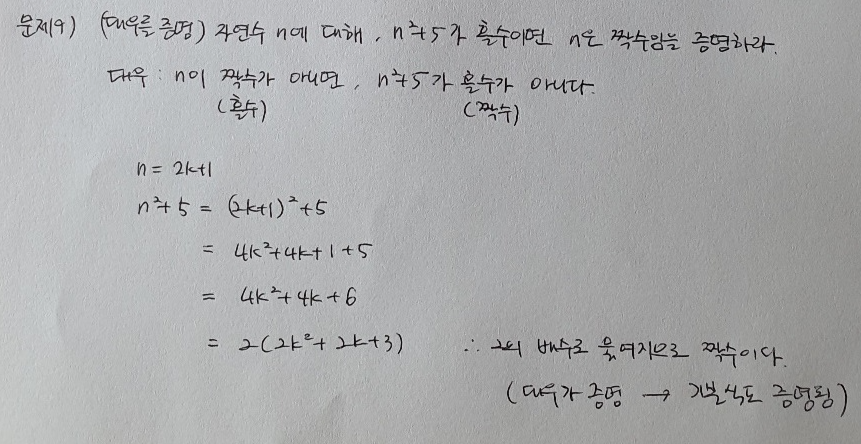 문제9) (대우를 증명) 자연수 n에 대해, n²+5가 홀수이면 n은 짝수임을 증명하라.
대우 : n이 짝수가 아니면, n²+5가 홀수가 아니다.
(홀수) (짝수)
n = 2k+1
n²+5 = (2k+1)²+5
= 4k²+4k+1+5
= 4k²+4k+6
= 2(2k²+2k+3) ∴ 2의 배수로 묶여지므로 짝수이다.
(대우가 증명 → 기본식도 증명됨)